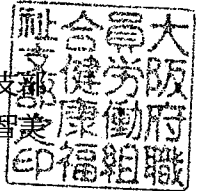 大阪府職
員労働組
合健康福
祉支部之印
支部
智美